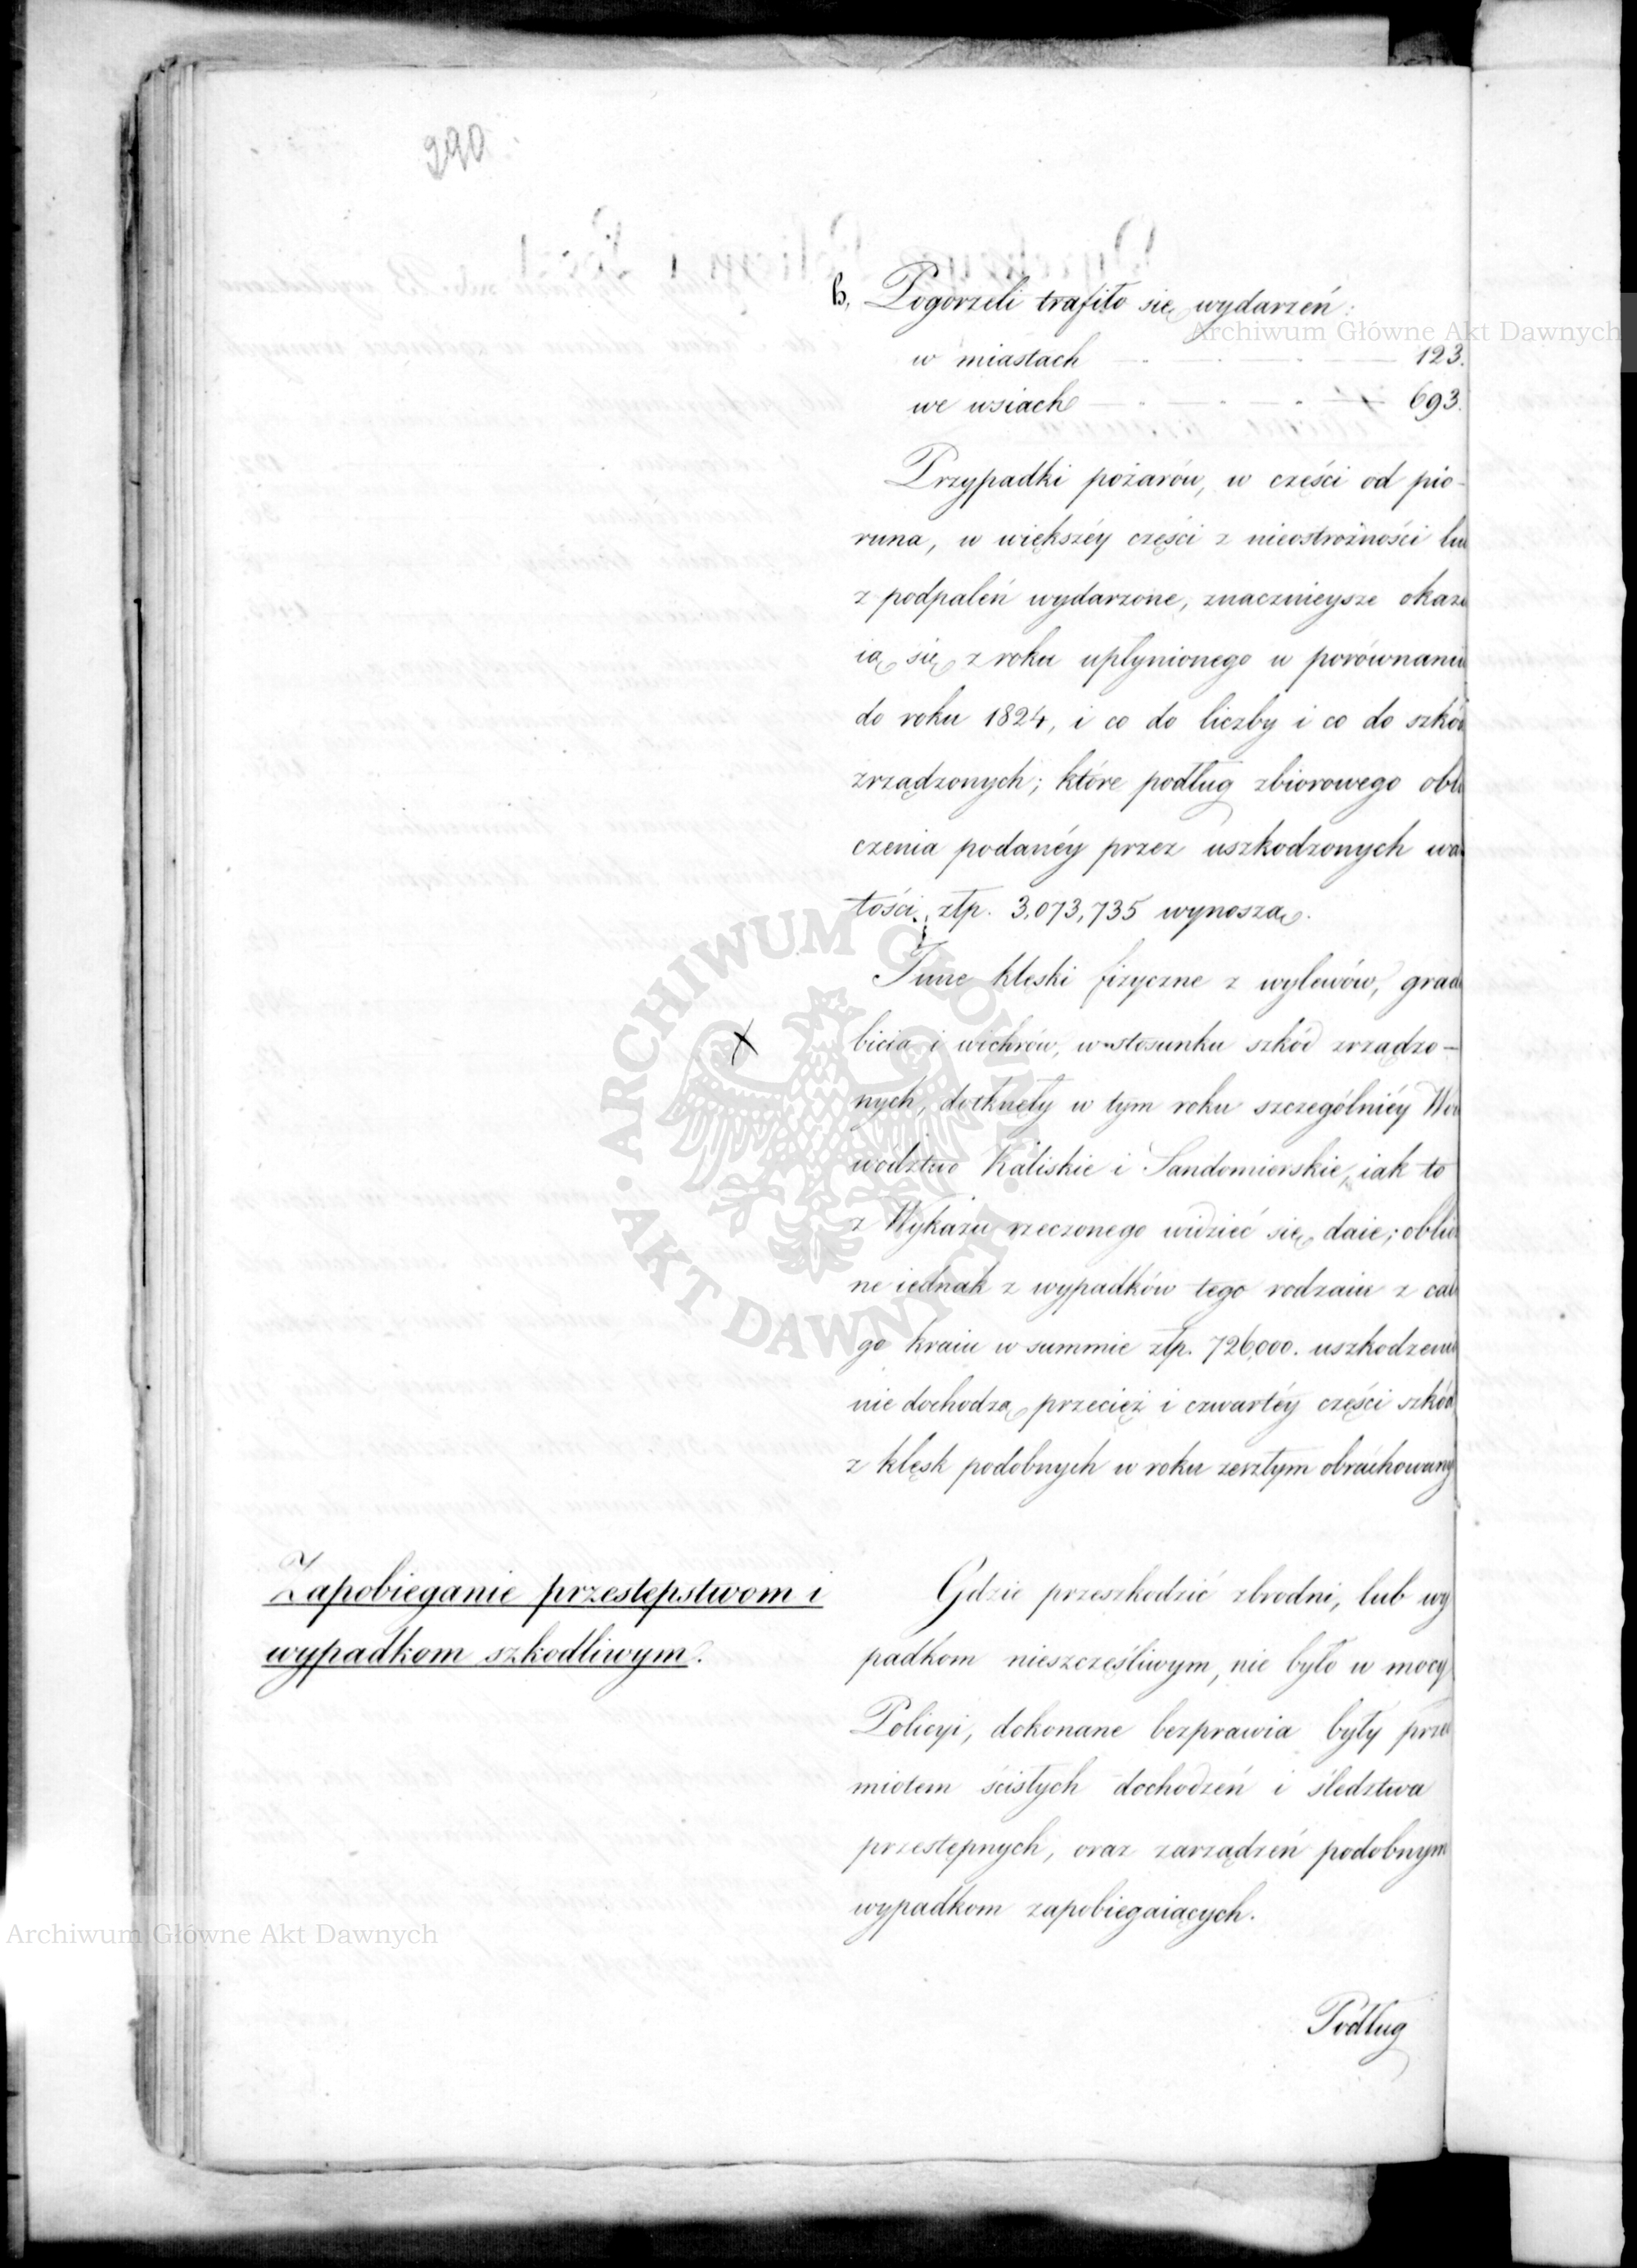 290
b. Pogorzeli trafiło się wydarzeń:
w miastach — 123.
we wsiach — 693.
Przypadki pożarów, w części od pio-
runa, w większéy części z nieostrożności lu
z podpaleń wydarzone, znacznieysze okazu
ią się z roku upłynionego w porównaniu
do roku 1824, i co do liczby i co do szkód
zrządzonych; które podług zbiorowego obli
czenia podanéy przez uszkodzonych war
tości, złp. 3,073,735 wynoszą.
Inne klęski fizyczne z wylewów, grado
bicia i wichrów, w stosunku szkód zrządzo-
nych, dotknęły w tym roku szczególniéy Woie
wództwo Kaliskie i Sandomierskie, iak to
z Wykazu rzeczonego widzieć się daie; oblicz
ne iednak z wypadków tego rodzaiu z całe
go kraiu w summie złp. 726,000. uszkodzenia
nie dochodzą przecięż i czwartéy części szkód
z klęsk podobnych w roku zeszłym obrachowany
Zapobieganie przestępstwom i
wypadkom szkodliwym.
Gdzie przeszkodzić zbrodni, lub wy
padkom nieszczęśliwym, nie było w mocy
Policyi, dokonane bezprawia były prze
miotem ścisłych dochodzeń i śledztwa
przestępnych, oraz zarządzeń podobnym
wypadkom zapobiegaiących.
Podług
Archiwum Główne Akt Dawnych
ARCHIWUM GŁÓWNE AKT DAWNYCH
Archiwum Główne Akt Dawnych